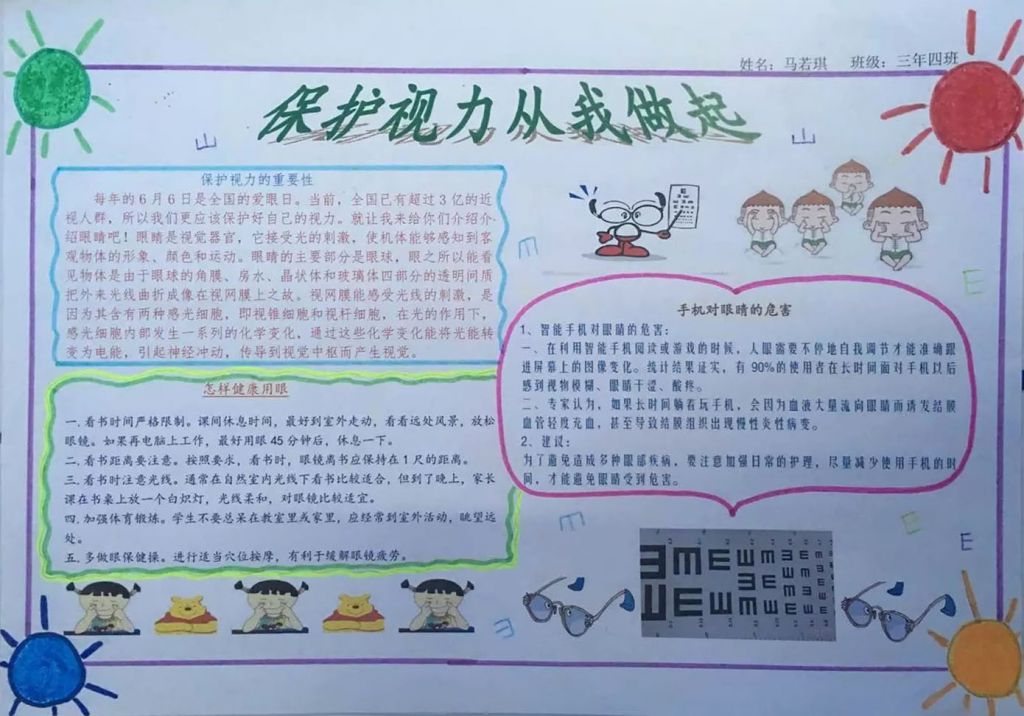 姓名：马若琪 班级：三年四班
保护视力从我做起
保护视力的重要性
每年的6月6日是全国的爱眼日。当前，全国已有超过3亿的近
视人群，所以我们更应该保护好自己的视力。就让我来给你们介绍介
绍眼睛吧！眼睛是视觉器官，它接受光的刺激，使机体能够感知到客
观物体的形象、颜色和运动。眼睛的主要部分是眼球，眼之所以能看
见物体是由于眼球的角膜、房水、晶状体和玻璃体四部分的透明间质
把外来光线曲折成像在视网膜上之故。视网膜能感受光线的刺激，是
因为其含有两种感光细胞，即视锥细胞和视杆细胞，在光的作用下，
感光细胞内部发生一系列的化学变化，通过这些化学变化能将光能转
变为电能，引起神经冲动，传导到视觉中枢而产生视觉。
怎样健康用眼
一.看书时间严格限制。课间休息时间，最好到室外走动，看看远处风景，放松
眼镜。如果再电脑上工作，最好用眼45分钟后，休息一下。
二.看书距离要注意。按照要求，看书时，眼镜离书应保持在1尺的距离。
三.看书时注意光线。通常在自然室内光线下看书比较适合，但到了晚上，家长
课在书桌上放一个白炽灯，光线柔和，对眼镜比较适宜。
四.加强体育锻炼。学生不要总呆在教室里或家里，应经常到室外活动，眺望远
处。
五.多做眼保健操。进行适当穴位按摩，有利于缓解眼镜疲劳。
手机对眼睛的危害
1、智能手机对眼睛的危害：
一、在利用智能手机阅读或游戏的时候，人眼需要不停地自我调节才能准确跟
进屏幕上的图像变化。统计结果证实，有90%的使用者在长时间面对手机以后
感到视物模糊、眼睛干涩、酸疼。
二、专家认为，如果长时间躺着玩手机，会因为血液大量流向眼睛而诱发结膜
血管轻度充血，甚至导致结膜组织出现慢性炎性病变。
2、建议：
为了避免造成多种眼部疾病，要注意加强日常的护理，尽量减少使用手机的时
间，才能避免眼睛受到危害。